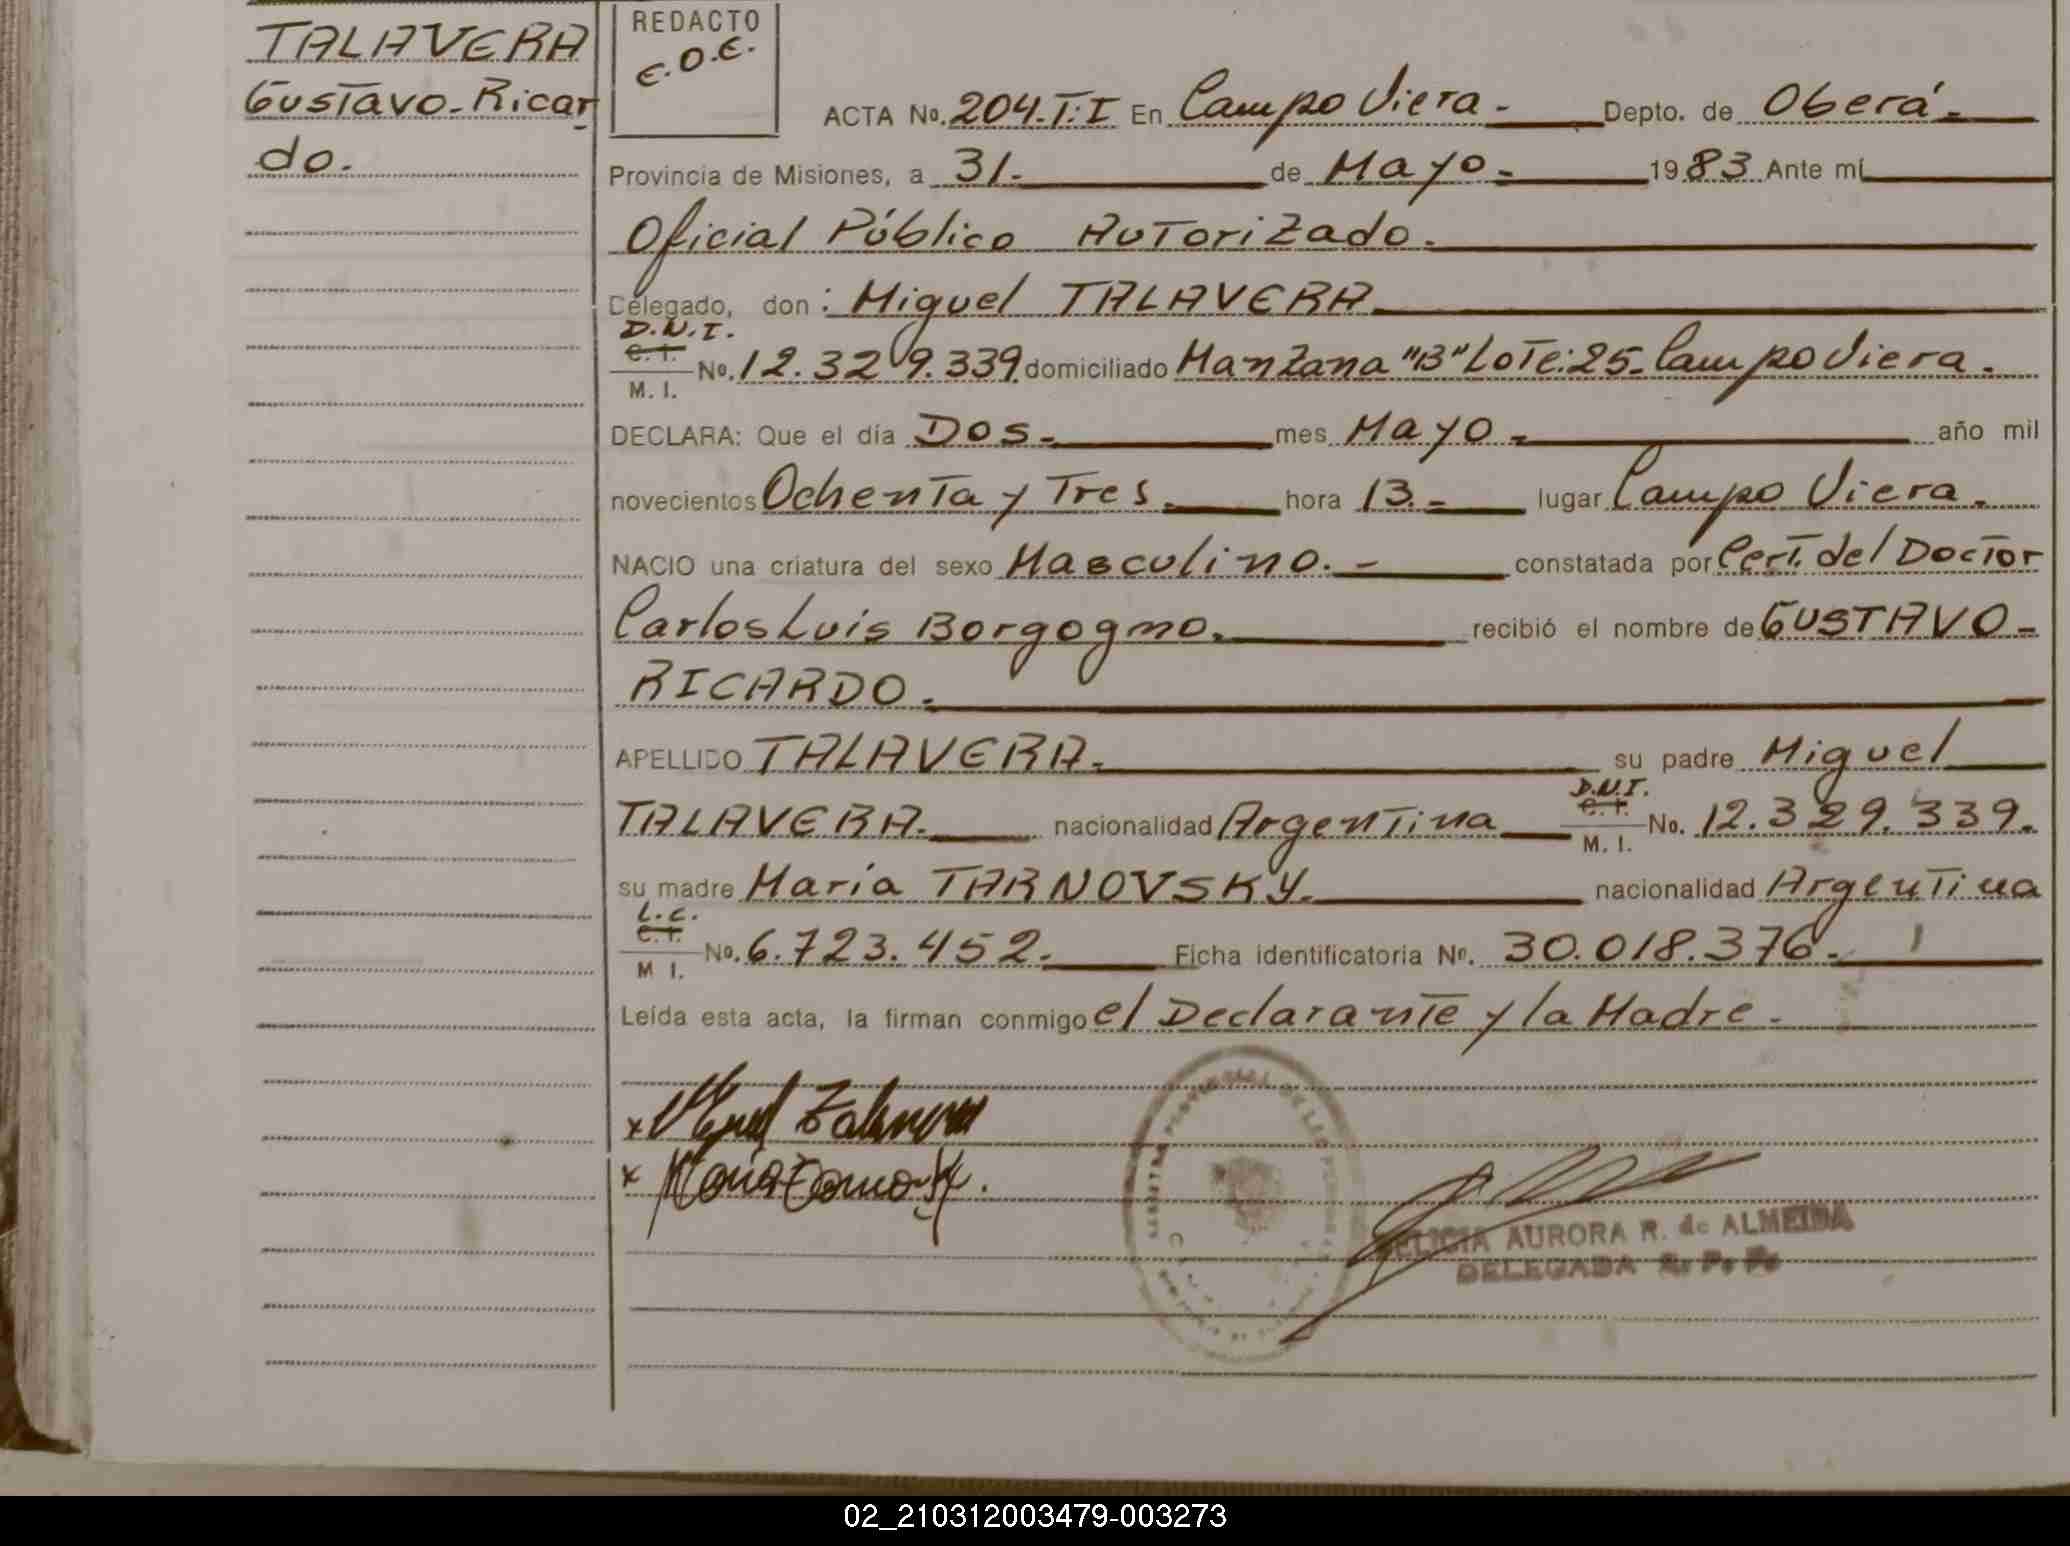 TALAVERA
Gustavo-Ricar
do.
REDACTO
E.O.E.
ACTA No. 204.T:I En Campo Viera - Depto. de Oberá.-
Provincia de Misiones, a 31.- de Mayo.- 1983 Ante mí
Oficial Público Autorizado.
Delegado, don: Miguel TALAVERA
D.N.I.
C. I.
No. 12.329.339 domiciliado Manzana "B" Lote:25-Campo Viera.
M. I.
DECLARA: Que el día Dos.- mes Mayo.- año mil
novecientos Ochenta y Tres.- hora 13.- lugar Campo Viera.
NACIO una criatura del sexo Masculino.- constatada por Cert. del Doctor
Carlos Luis Borgogno. recibió el nombre de GUSTAVO-
RICARDO.
APELLIDO TALAVERA.- su padre Miguel
D.N.I.
C. I.
TALAVERA. nacionalidad Argentina No. 12.329.339.
M. I.
su madre María TARNOVSKY. nacionalidad Argentina
L.C.
C. I.
No. 6.723.452.- Ficha identificatoria No. 30.018.376.-
M I.
Leída esta acta, la firman conmigo el Declarante y la Madre.
x Miguel Talavera
x Maria Tarnovsky.
FELICIA AURORA R. de ALMEIDA
DELEGADA R. P. P.
02_210312003479-003273